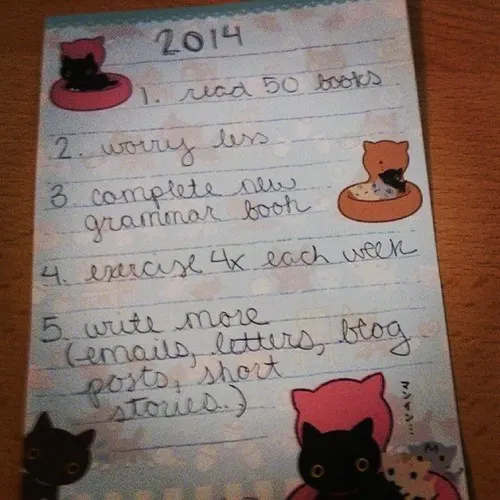 2014
1. read 50 books
2. worry less
3 complete new
grammar book
4. exercise 4x each week
5. write more
(emails, letters, blog
posts, short
stories.)